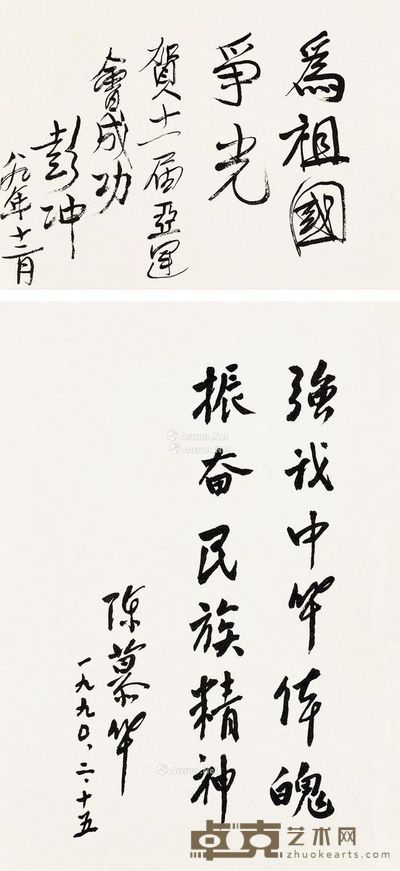 爲祖國
爭光
賀十一届亞運
會成功
彭冲
八九年十二月
強我中华体魄
振奋民族精神
陈慕华
一九九〇.二.十五
Artron.Net
Artron.Net
卓克艺术网
zhuokearts.com